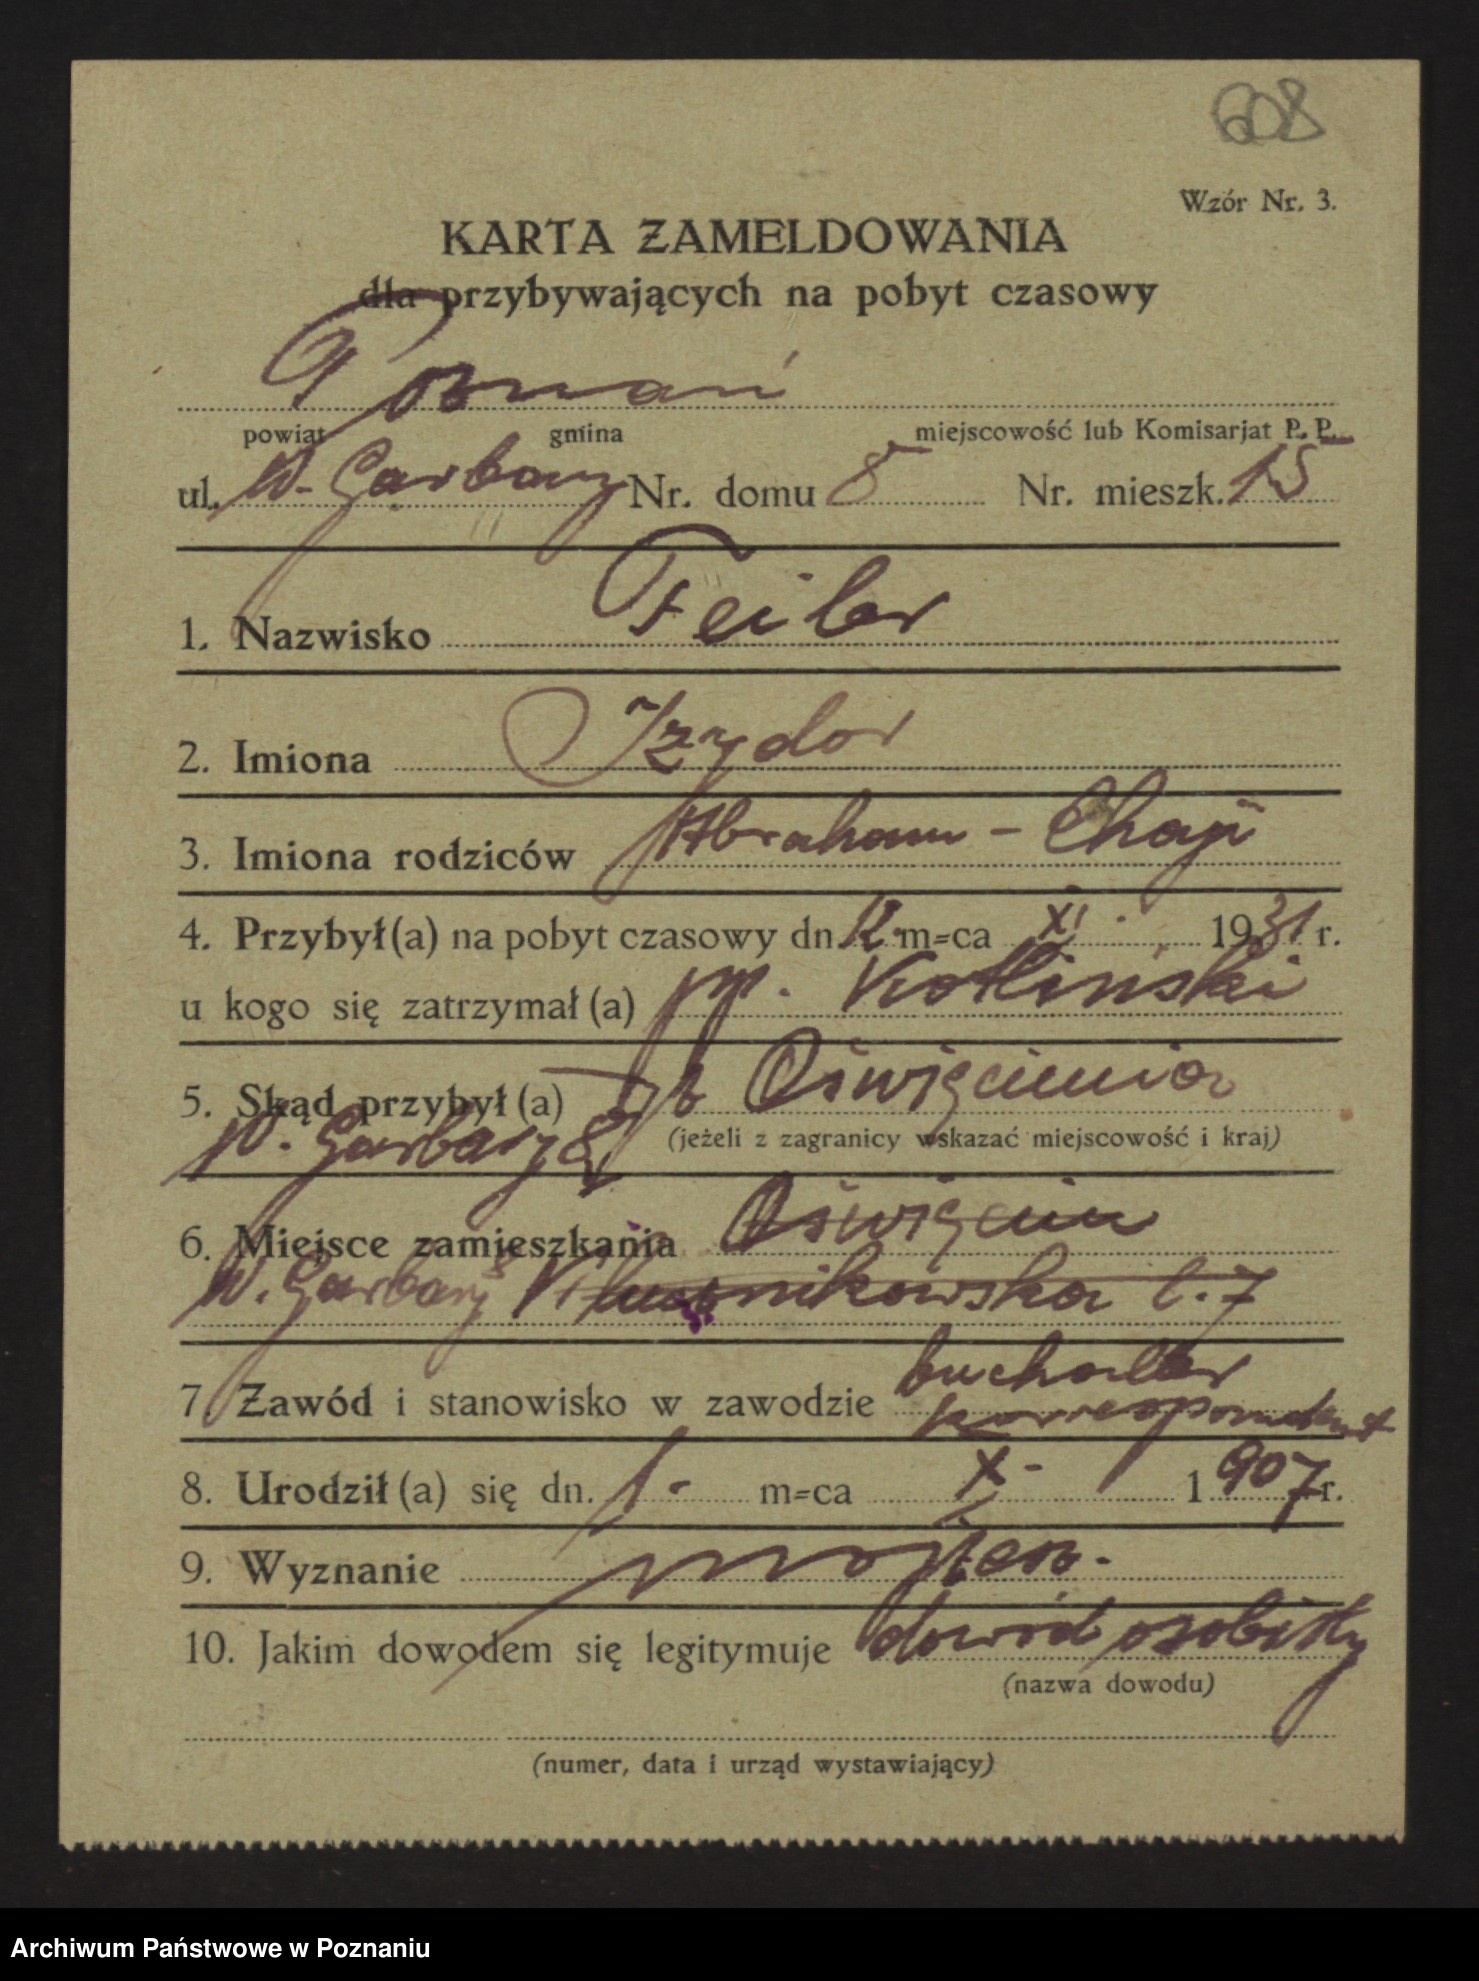 608
Wzór Nr. 3.
KARTA ZAMELDOWANIA
dla przybywających na pobyt czasowy
Poznań
powiat gmina miejscowość lub Komisarjat P. P.
ul. W. Garbary Nr. domu 8 Nr. mieszk. 15
1. Nazwisko Feiler
2. Imiona Izydor
3. Imiona rodziców Abraham - Chaji
4. Przybył(a) na pobyt czasowy dn. 12. m-ca XI. 1931 r.
u kogo się zatrzymał(a) p. Kotliński
5. Skąd przybył(a) Oświęcimia
W. Garbary 8 (jeżeli z zagranicy wskazać miejscowość i kraj)
6. Miejsce zamieszkania Oświęcim
W. Garbary l. 7
7. Zawód i stanowisko w zawodzie buchalter
korrespondent
8. Urodził(a) się dn. 1. m-ca X. 1907 r.
9. Wyznanie mojżesz.
10. Jakim dowodem się legitymuje dowód osobisty
(nazwa dowodu)
(numer, data i urząd wystawiający)
Archiwum Państwowe w Poznaniu